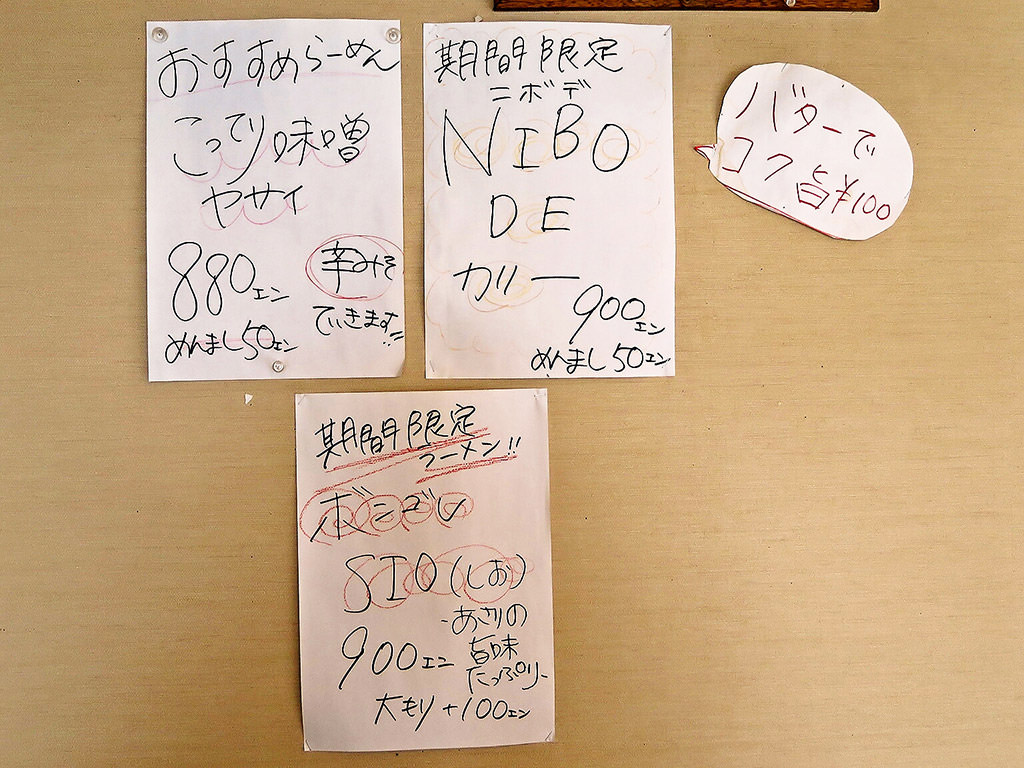 おすすめらーめん
こってり味噌
ヤサイ
880エン
辛みそ
でいきます!!
めんまし50エン
期間限定
ニボデ
NIBO
DE
カリー
900エン
めんまし50エン
バターで
コク旨¥100
期間限定
ラーメン!!
ボンゴレ
SIO(しお)
-あさりの
旨味
たっぷり-
900エン
大もり+100エン